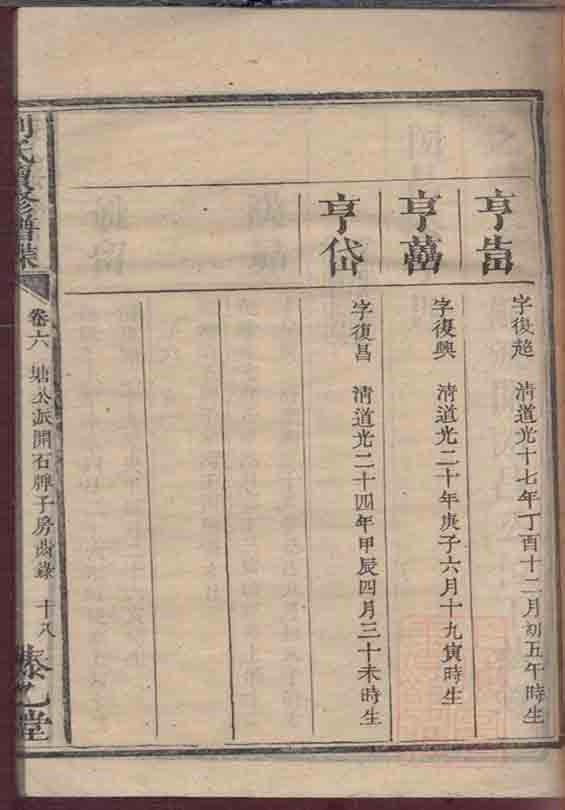 亨峕
字復趂 清道光十七年丁酉十二月初五午時生
亨萬
字復興 清道光二十年庚子六月十九寅時生
亨岱
字復昌 清道光二十四年甲辰四月三十未時生
劉氏續修譜牒
卷六 塘公派開石牌子房齒錄 十八
藜乙堂